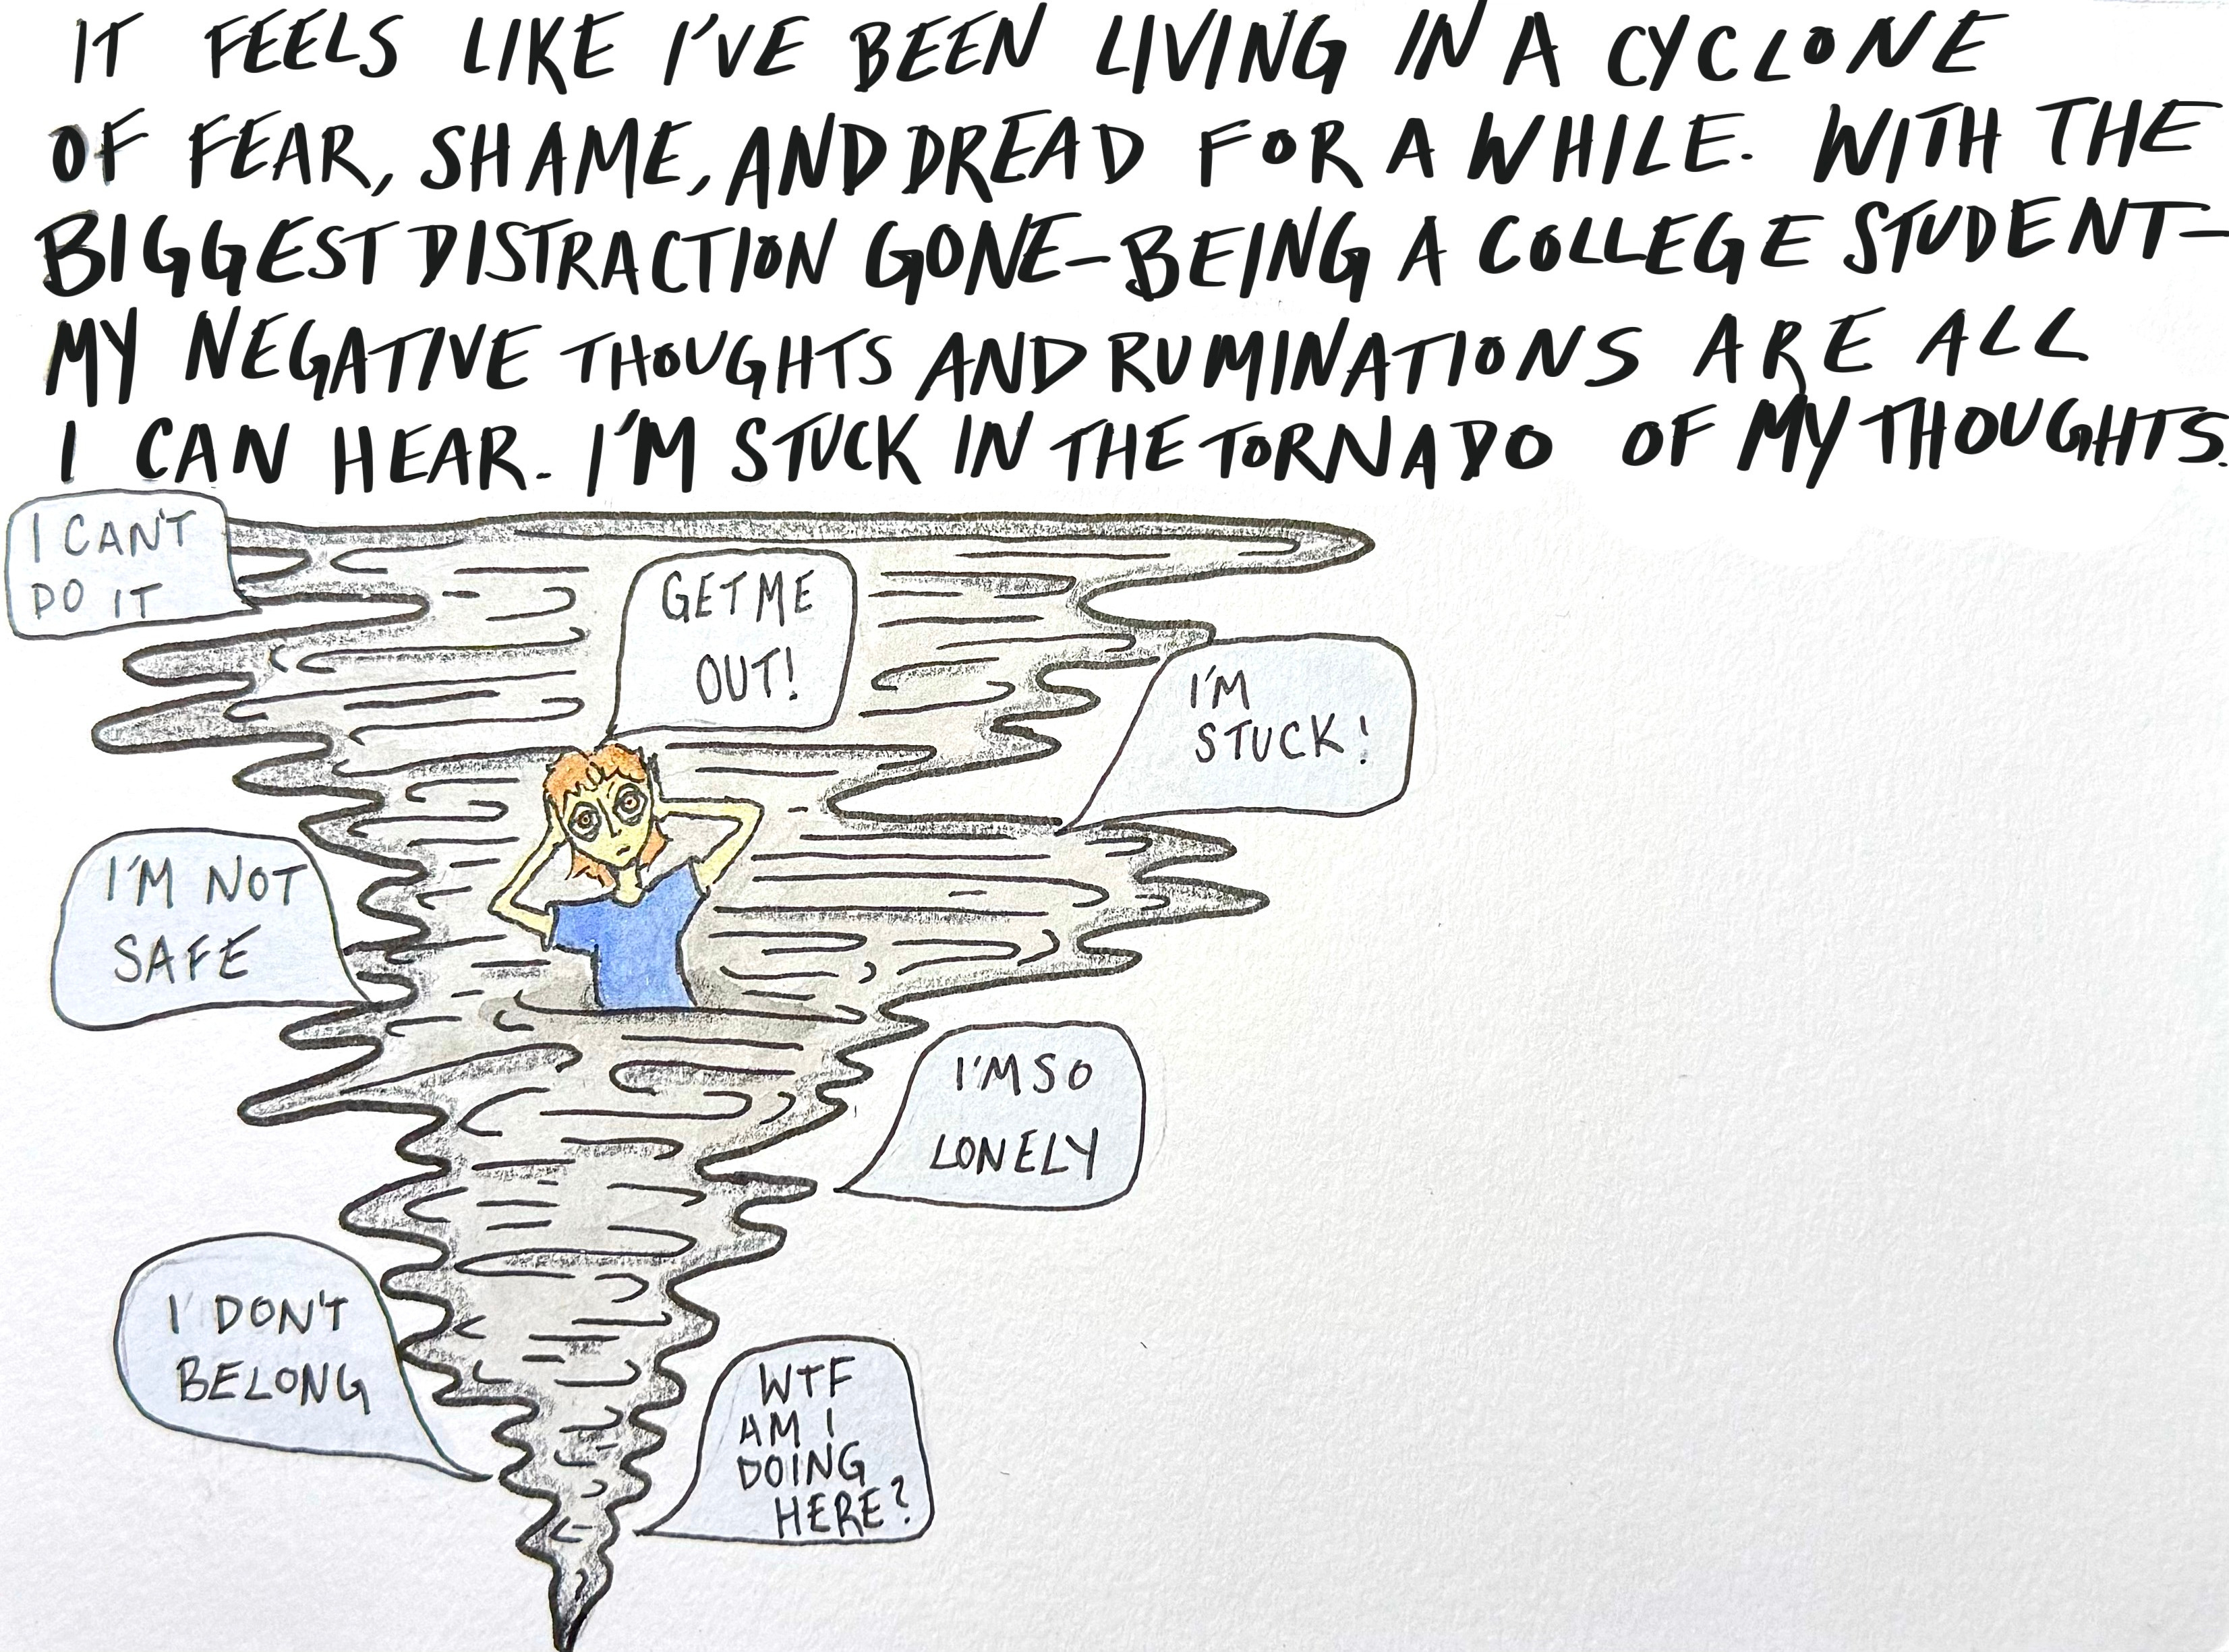 IT FEELS LIKE I'VE BEEN LIVING IN A CYCLONE
OF FEAR, SHAME, AND DREAD FOR A WHILE. WITH THE
BIGGEST DISTRACTION GONE-BEING A COLLEGE STUDENT-
MY NEGATIVE THOUGHTS AND RUMINATIONS ARE ALL
I CAN HEAR. I'M STUCK IN THE TORNADO OF MY THOUGHTS.
I CAN'T
DO IT
GET ME
OUT!
I'M
STUCK!
I'M NOT
SAFE
I'M SO
LONELY
I DON'T
BELONG
WTF
AM I
DOING
HERE?